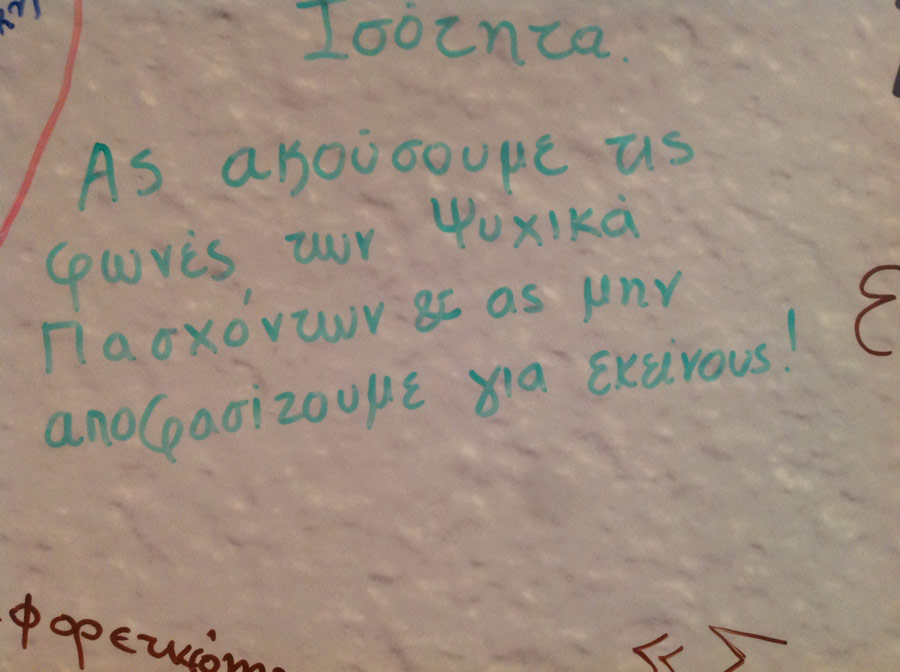 Ισότητα.
Ας ακούσουμε τις
φωνές των Ψυχικά
Πασχόντων & ας μην
αποφασίζουμε για εκείνους!